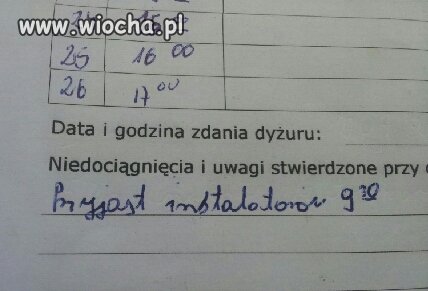 www.wiocha.pl
25 16 00
26 17 00
Data i godzina zdania dyżuru:
Niedociągnięcia i uwagi stwierdzone przy
Pryjast instalatorów 9 30